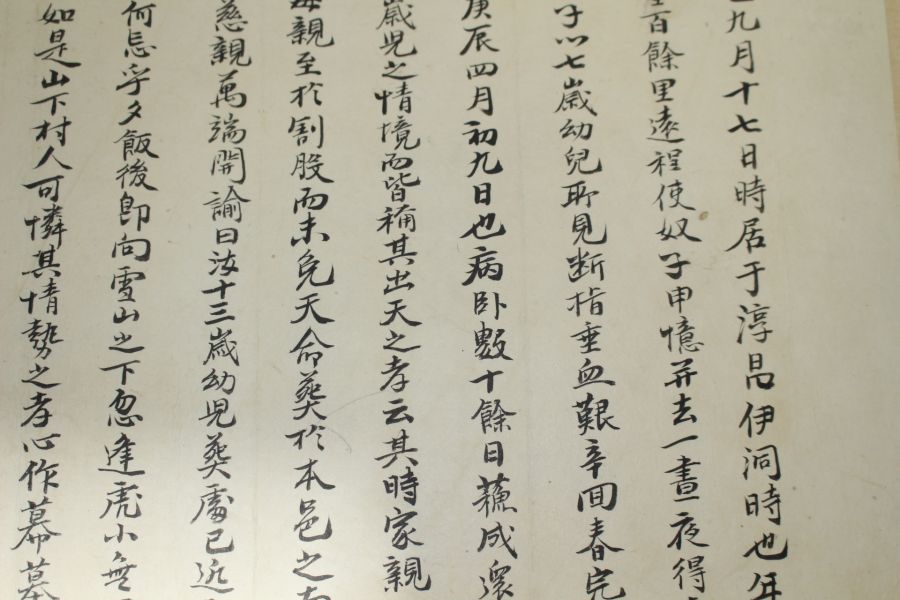 九月十七日時居于淳昌伊洞時也年
百餘里遠程使奴子申憶并去一晝夜得
子以七歲幼兒即見断指垂血艱辛回春完
庚辰四月初九日也病卧數十餘日蘓成還
歲児之情境而皆稱其出天之孝云其時家親
親至於割股而未免天命葬於本邑之南
慈親萬端開諭曰汝十三歲幼児葬處已近
何忘乎夕飯後即向雪山之下忽逢虎小無
如是山下村人可憐其情勢之孝心作幕墓